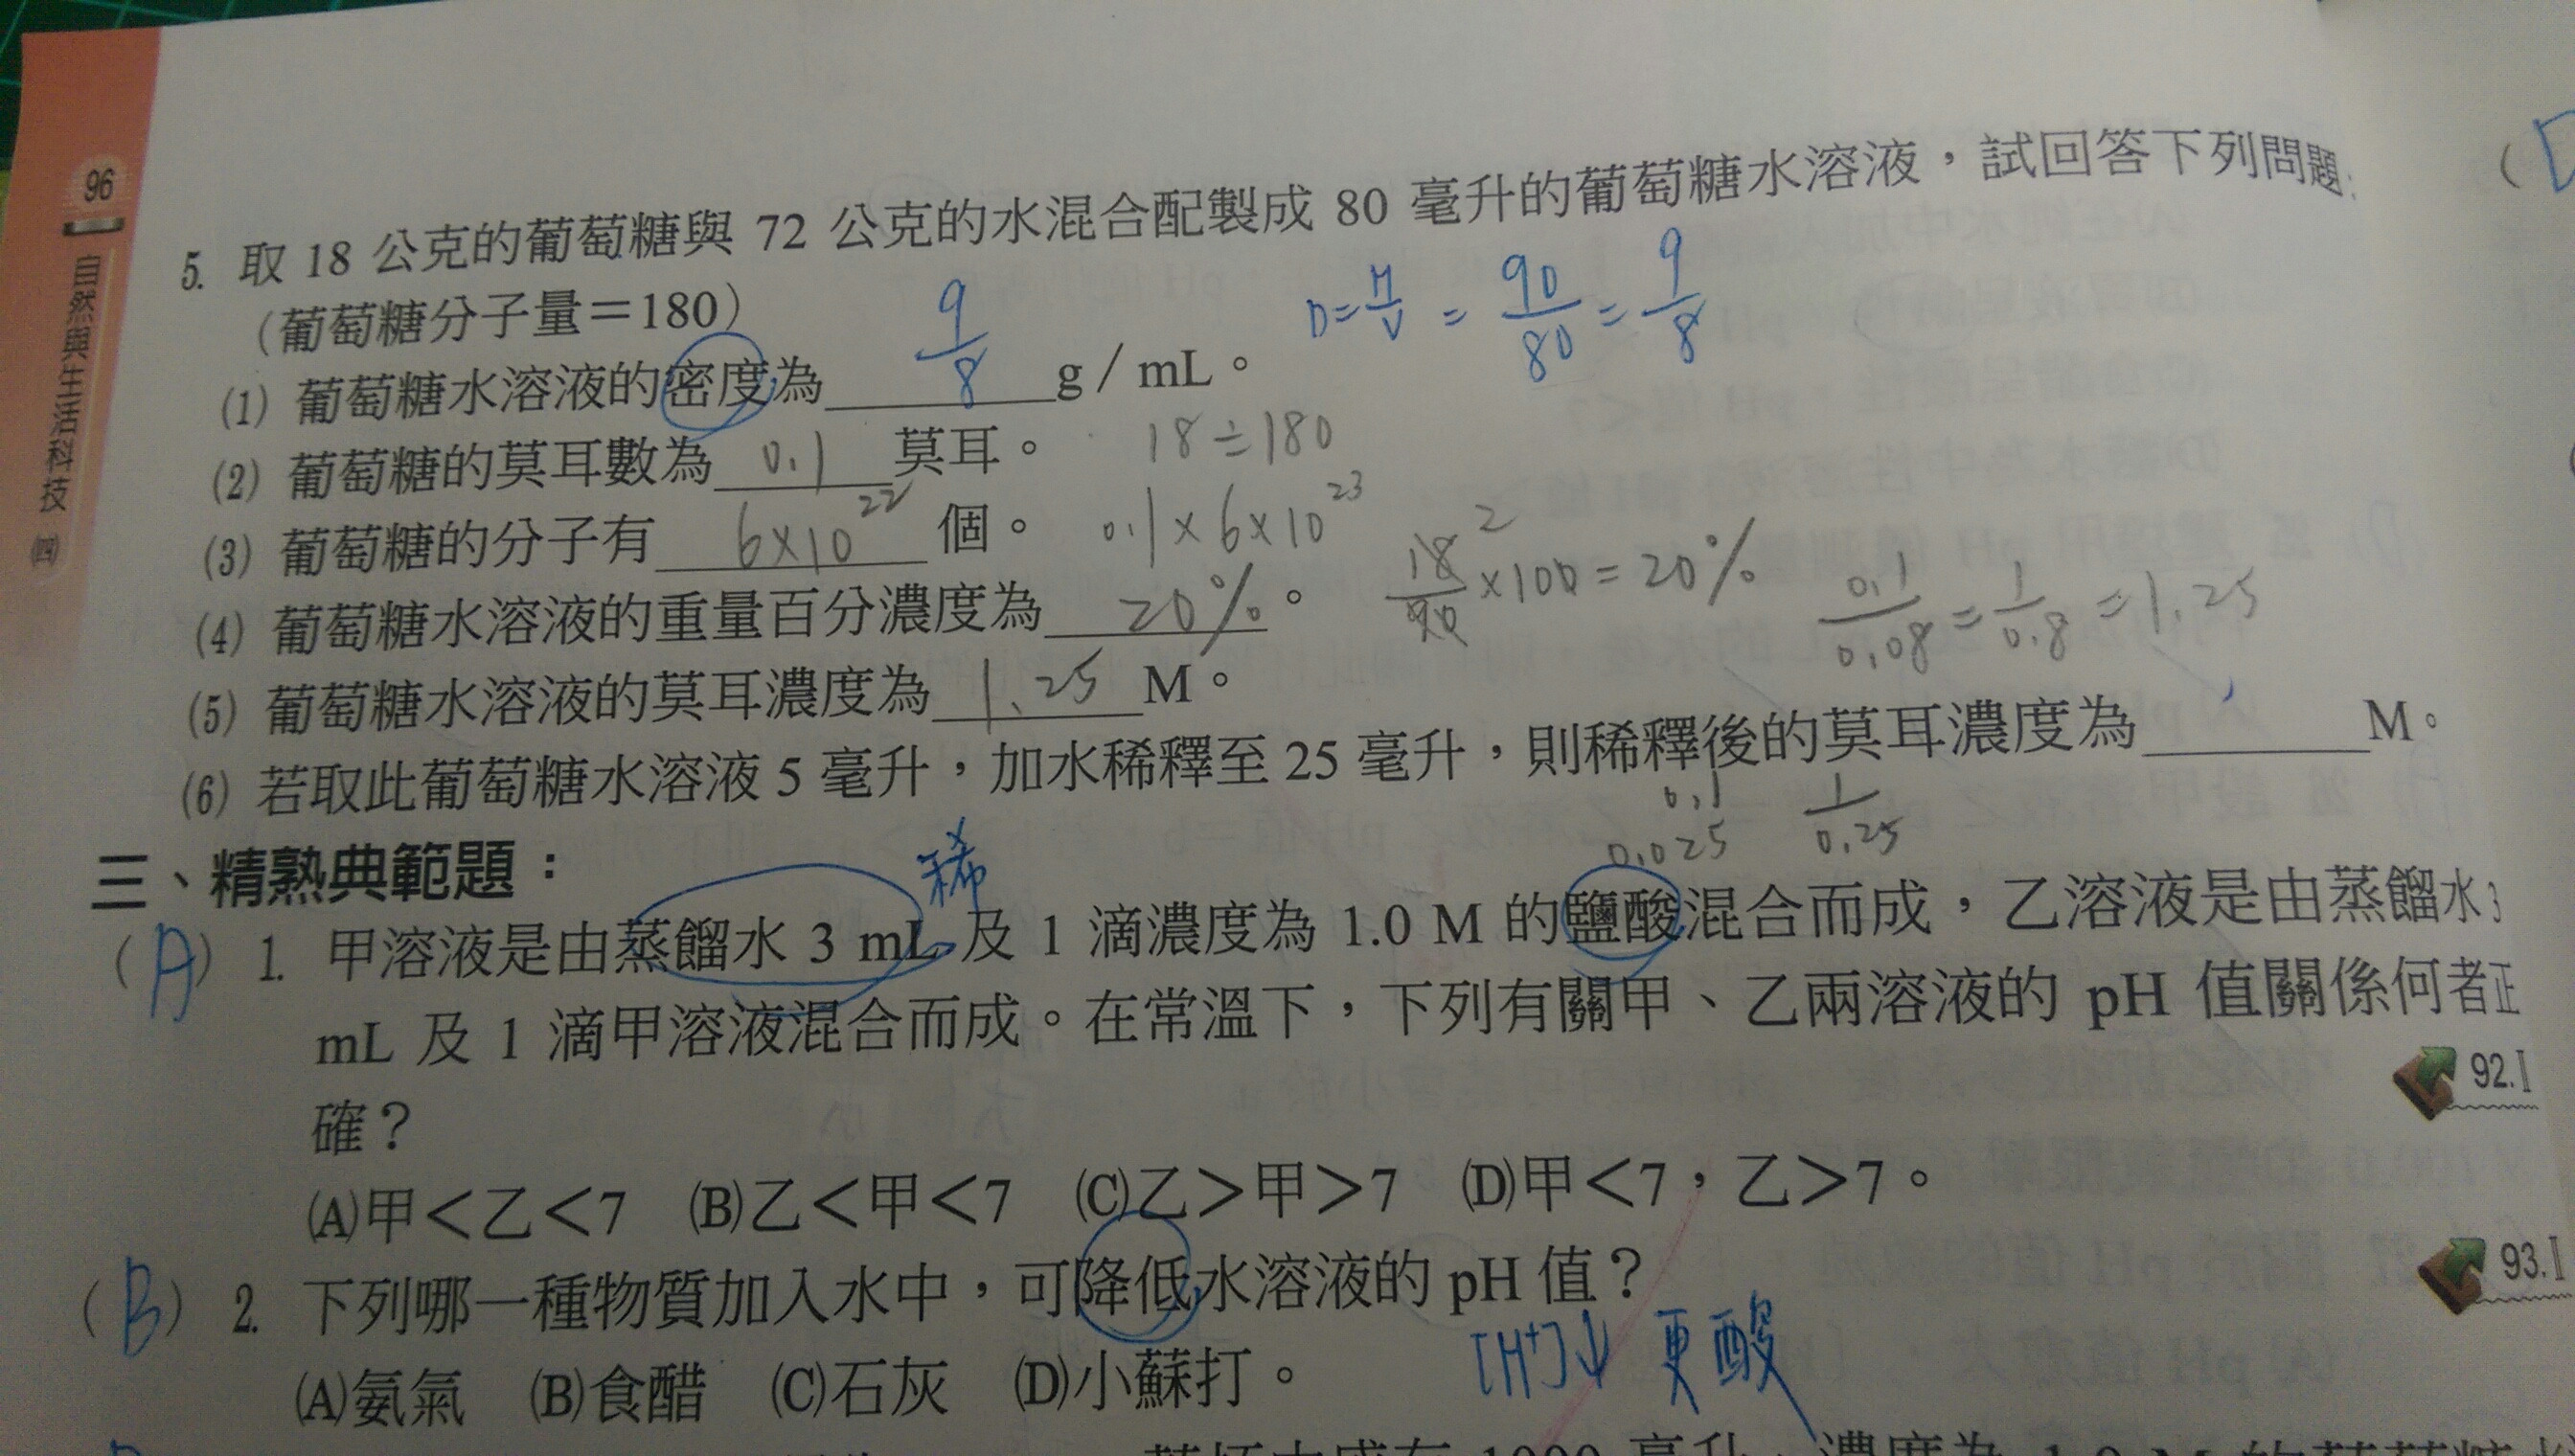 96
自然與生活科技(四)
5. 取 18 公克的葡萄糖與 72 公克的水混合配製成 80 毫升的葡萄糖水溶液，試回答下列問題:
(葡萄糖分子量＝180)
D=M/V = 90/80 = 9/8
(1) 葡萄糖水溶液的密度為 9/8 g / mL。
(2) 葡萄糖的莫耳數為 0.1 莫耳。 18÷180
(3) 葡萄糖的分子有 6×10²² 個。 0.1×6×10²³
(4) 葡萄糖水溶液的重量百分濃度為 20%。 18/90 2 ×100=20%
0.1/0.08 = 1/0.8 = 1.25
(5) 葡萄糖水溶液的莫耳濃度為 1.25 M。
(6) 若取此葡萄糖水溶液 5 毫升，加水稀釋至 25 毫升，則稀釋後的莫耳濃度為 M。
0.1 0.025 1/0.25
三、精熟典範題：
稀
(A) 1. 甲溶液是由蒸餾水 3 mL 及 1 滴濃度為 1.0 M 的鹽酸混合而成，乙溶液是由蒸餾水 3
mL 及 1 滴甲溶液混合而成。在常溫下，下列有關甲、乙兩溶液的 pH 值關係何者正
確？
92.I
(A)甲＜乙＜7 (B)乙＜甲＜7 (C)乙＞甲＞7 (D)甲＜7，乙＞7。
(B) 2. 下列哪一種物質加入水中，可降低水溶液的 pH 值？
93.I
(A)氨氣 (B)食醋 (C)石灰 (D)小蘇打。
[H⁺]↓ 更酸
1000 毫升、濃度為 1.0 M 的葡萄糖水